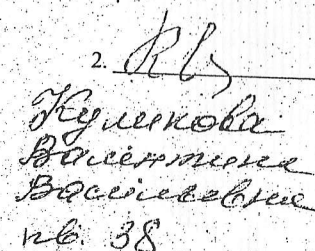 2.
Куликова
Валентина
Васильевна
кв. 38